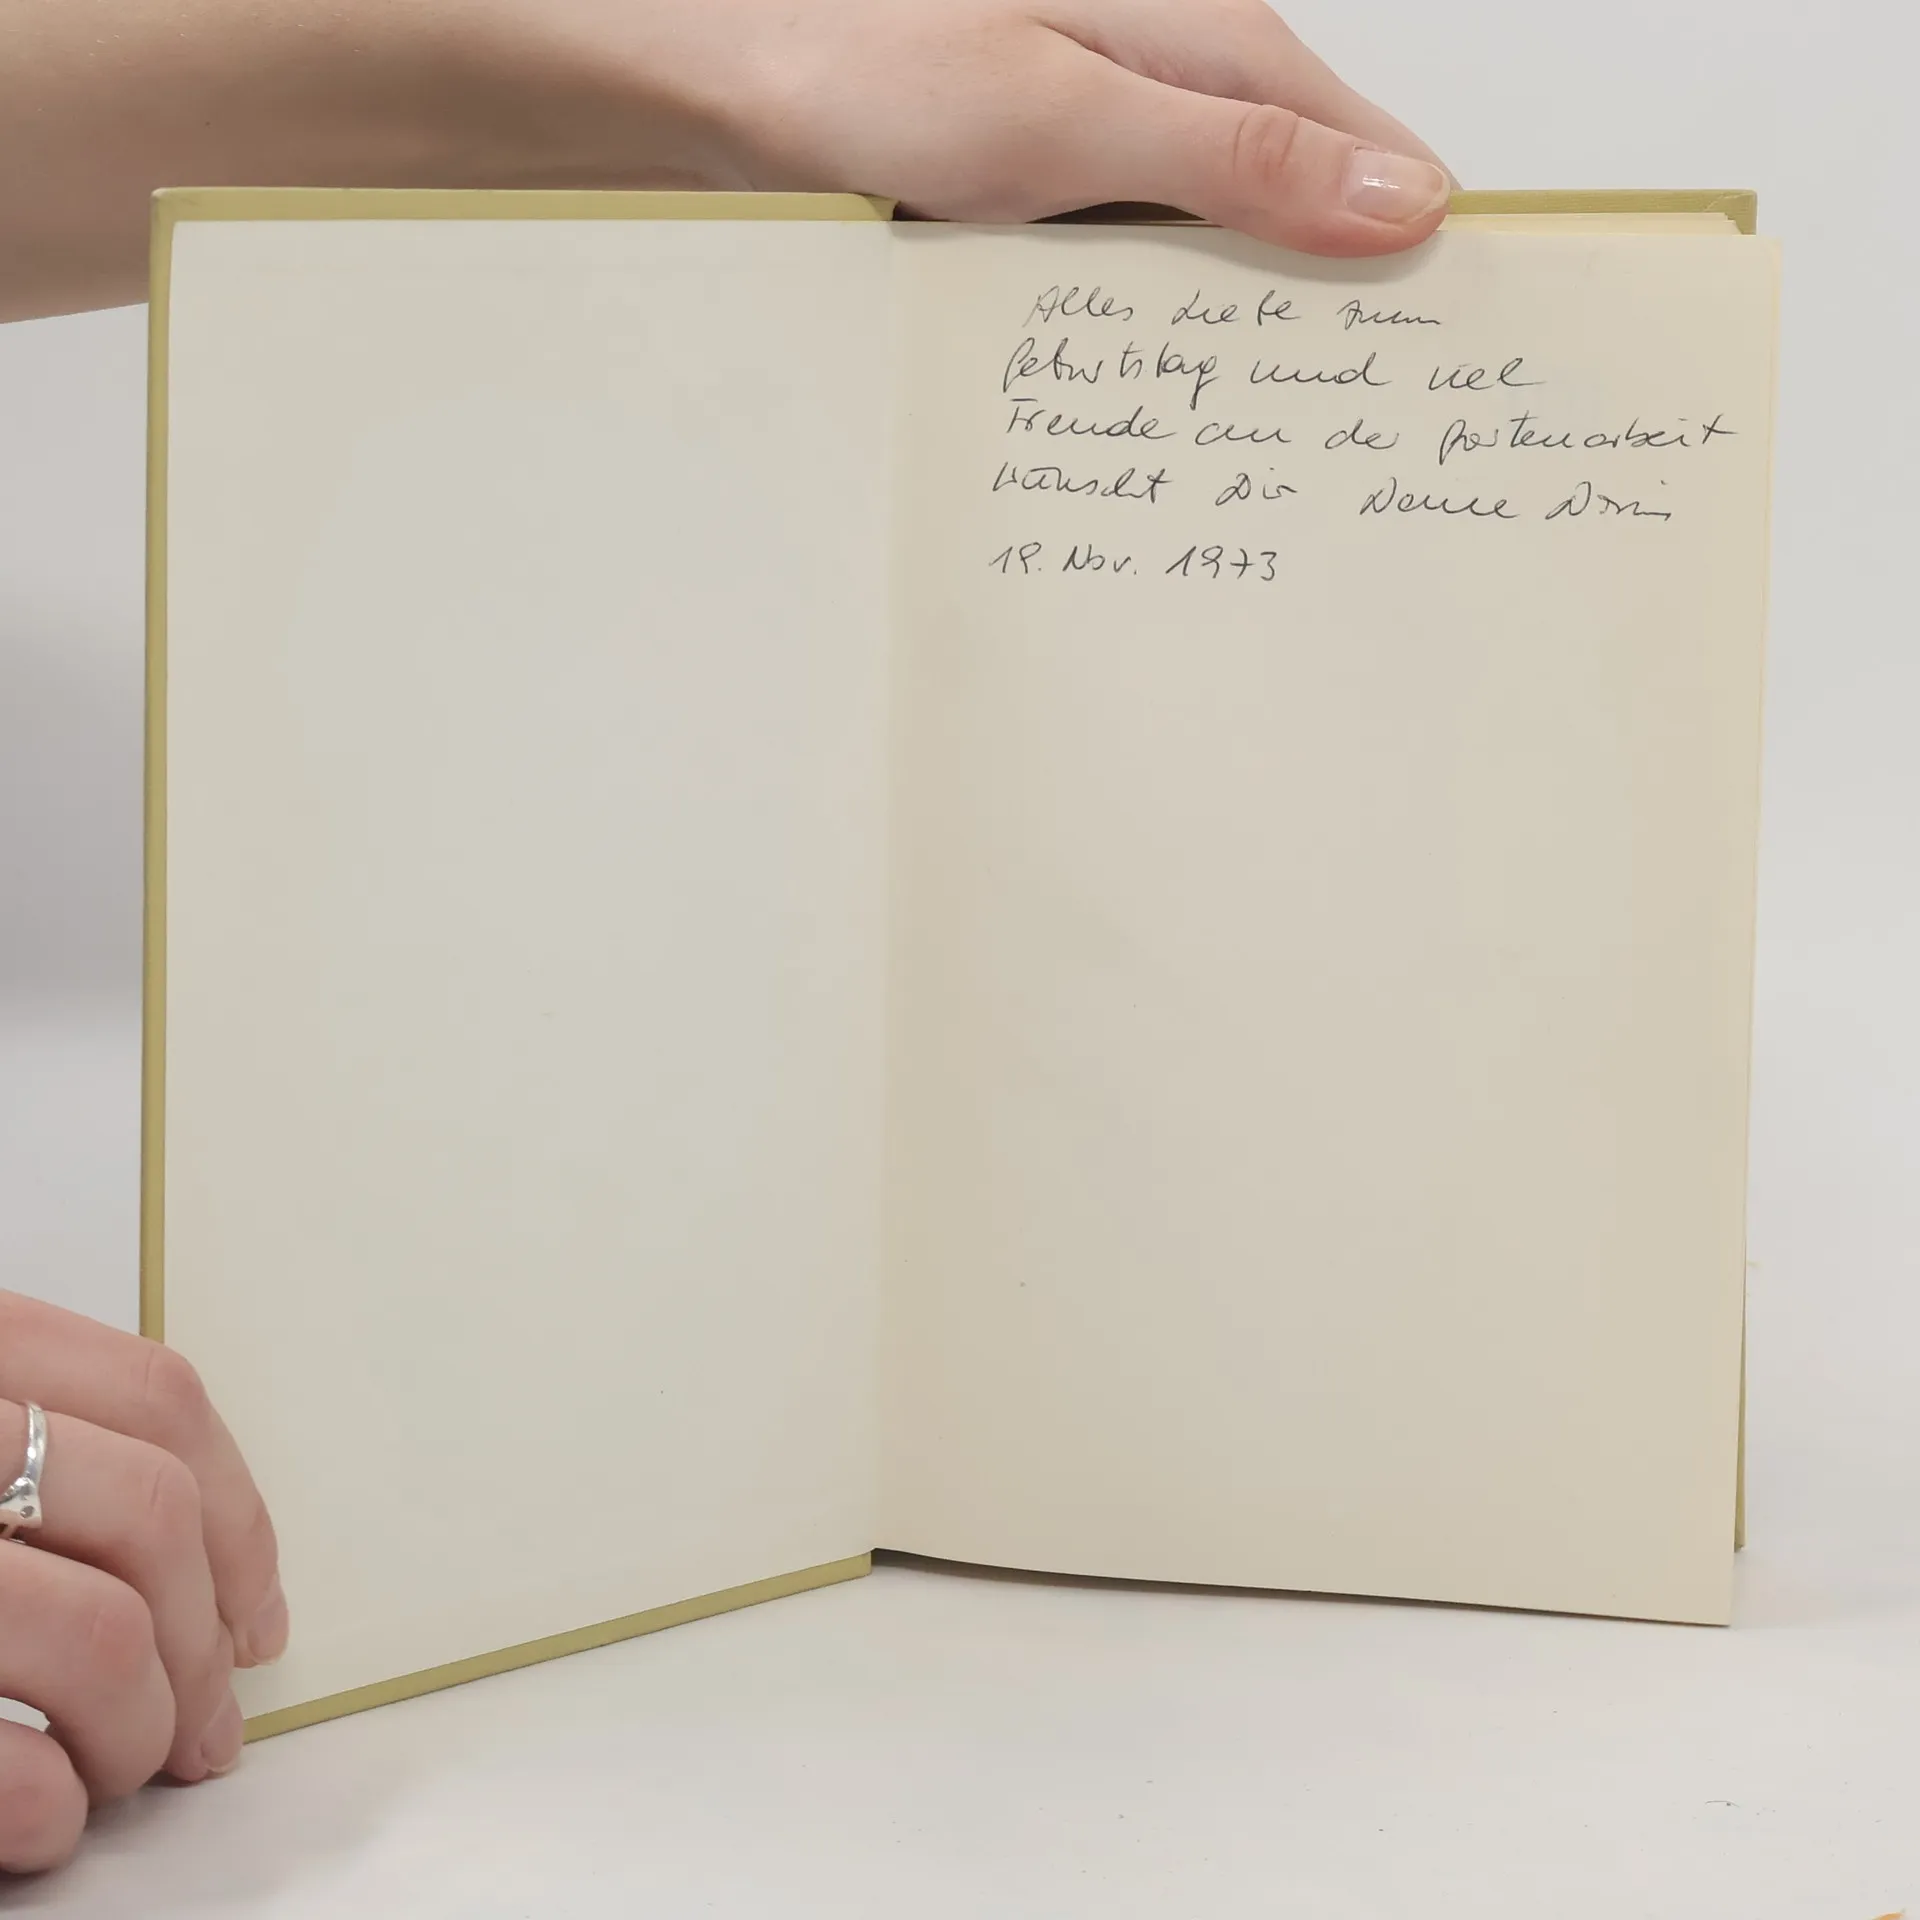 Alles Liebe zum
Geburtstag und viel
Freude an der Gartenarbeit
wünscht Dir Deine Doris
19. Nov. 1973